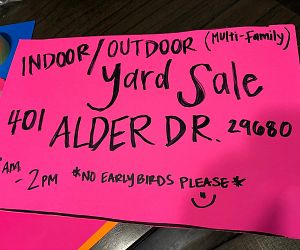 INDOOR/OUTDOOR (Multi-Family)
yard Sale
401 ALDER DR. 29680
AM - 2PM *NO EARLY BIRDS PLEASE*